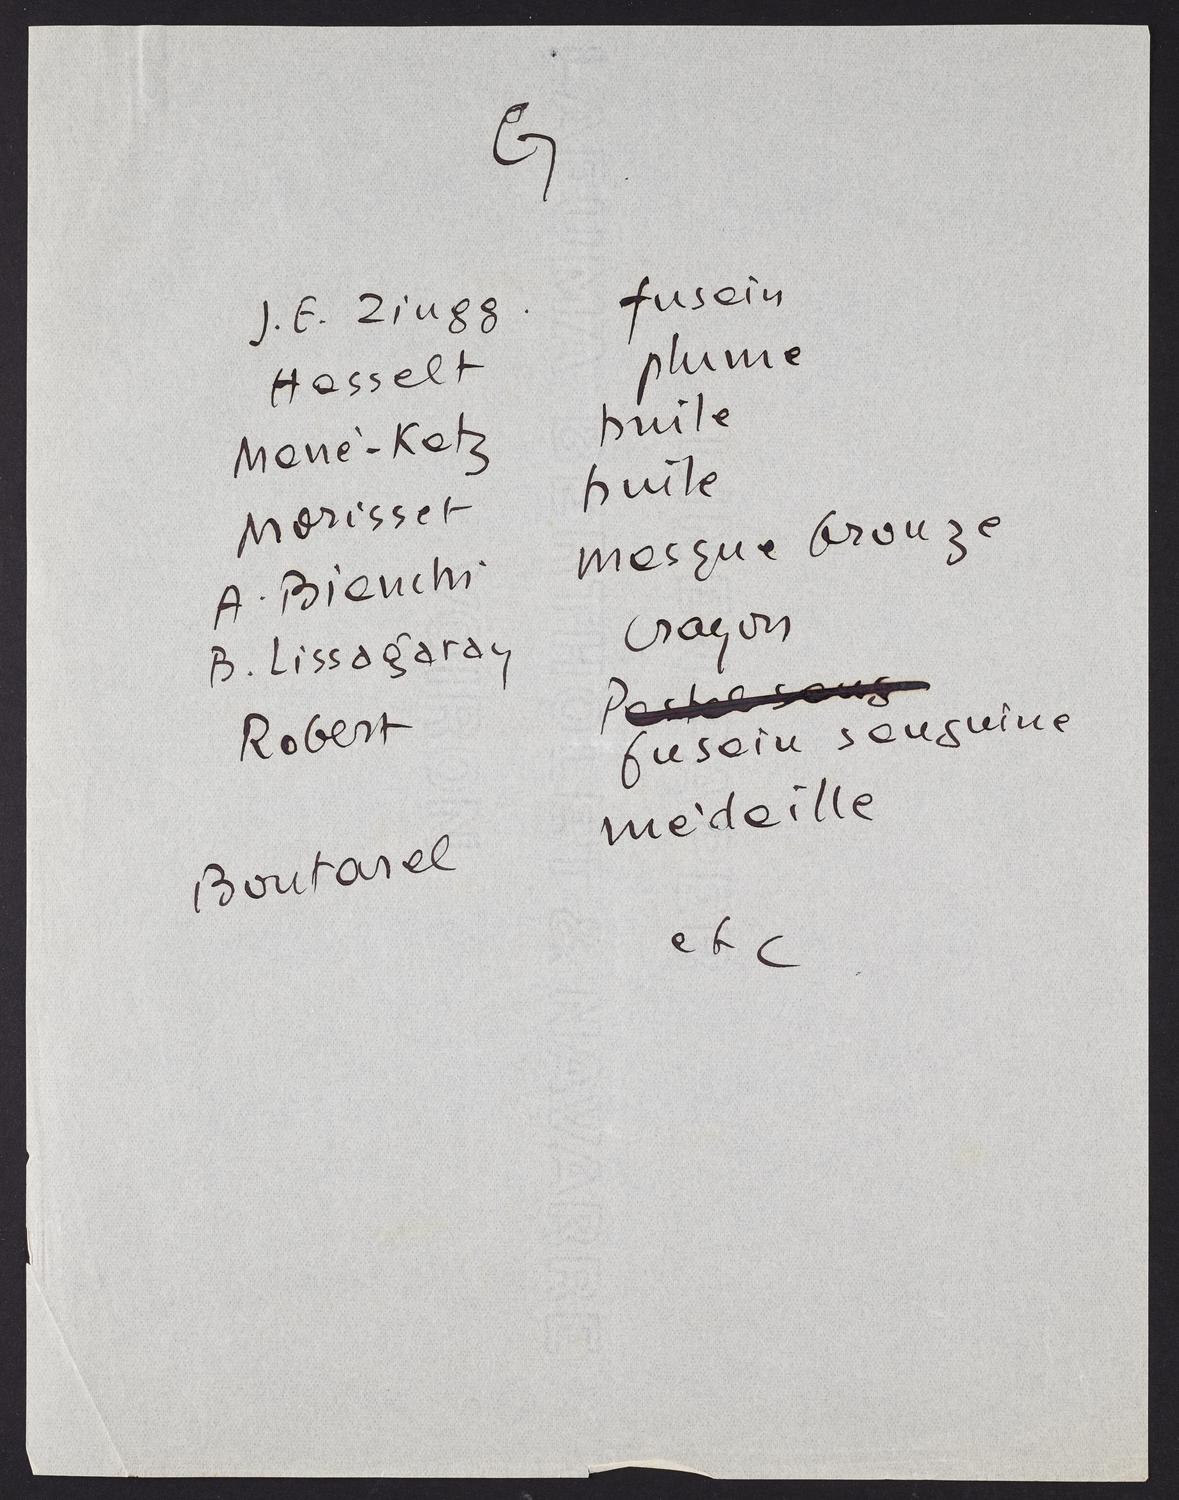 G
J.E. Zingg. fusain
Hasselt plume
Mané-Katz huile
Morisset huile
A. Bianchi masque bronze
B. Lissagaray crayon
Robert fusain sanguine
Boutarel médaille
etc